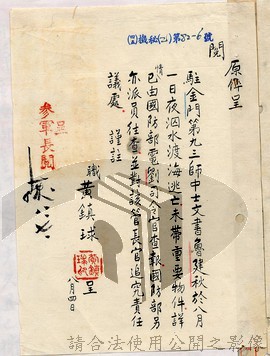 (四)機秘(乙)第52-6號
閱
原件呈
駐金門第九三師中士文書魯建秋於八月
一日夜泅水渡海逃亡未帶重要物件詳
情已由國防部電劉司令官查報國防部另
亦派員往查並對該管長官追究責任
議處 謹註
職黃鎮球呈
八月四日
呈
參軍長閱
黃鎮球印
請合法使用公開之影像